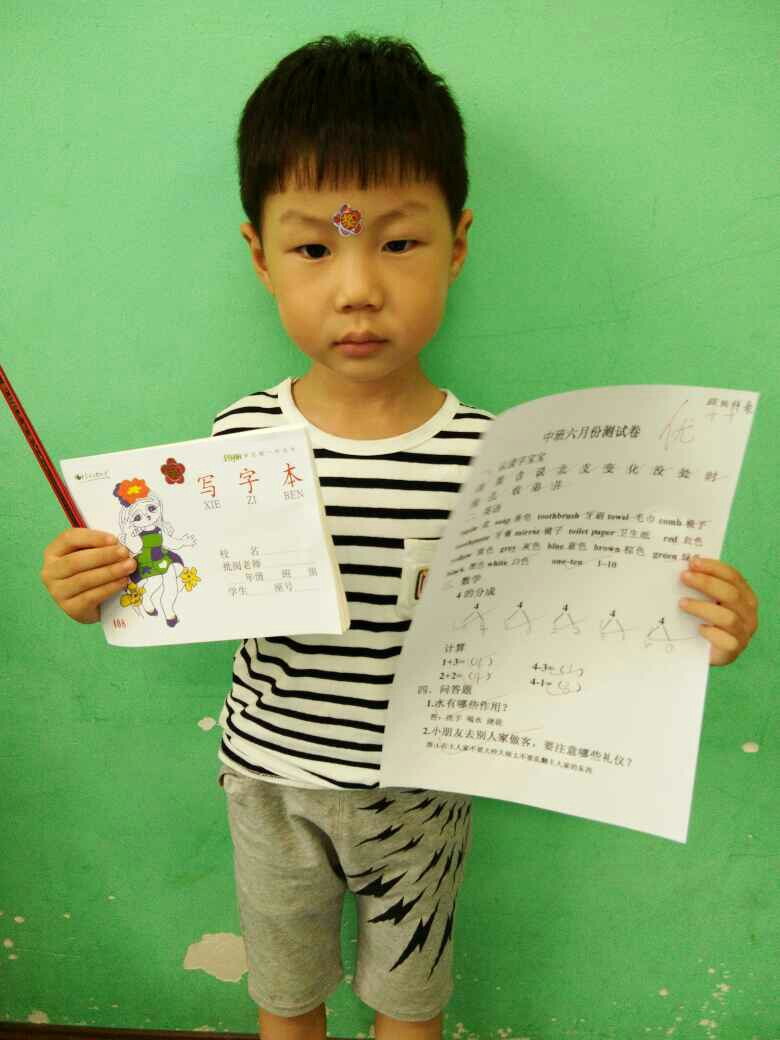 写字本
XIE ZI BEN
校 名
批阅老师
年级 班 班
学生 座号
108
优
中班六月份测试卷
一、认读字宝宝
变 化 没 处 时
二 英语
soap 香皂 toothbrush 牙刷 towel 毛巾 comb 梳子
牙膏 mirror 镜子 toilet paper 卫生纸 red 红色
yellow 黄色 grey 灰色 blue 蓝色 brown 棕色 green 绿色
black 黑色 white 白色 one-ten 1-10
三 数学
4 的分成
4 4 4 4 4
计算
1+3=(4) 4-3=(1)
2+2=(4) 4-1=(3)
四、问答题
1.水有哪些作用？
答：洗手 喝水 浇花
2.小朋友去别人家做客，要注意哪些礼仪？
答:在主人家不要大吵大闹 不要乱翻主人家的东西